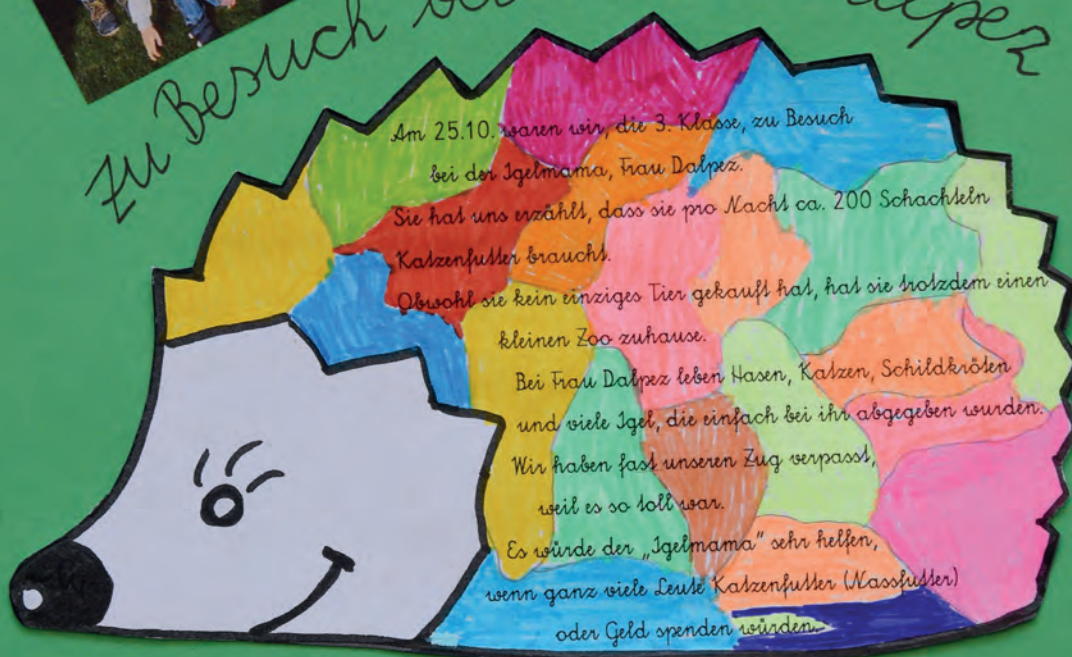 Zu Besuch
Am 25.10. waren wir, die 3. Klasse, zu Besuch
bei der Igelmama, Frau Dalpez.
Sie hat uns erzählt, dass sie pro Nacht ca. 200 Schachteln
Katzenfutter braucht.
Obwohl sie kein einziges Tier gekauft hat, hat sie trotzdem einen
kleinen Zoo zuhause.
Bei Frau Dalpez leben Hasen, Katzen, Schildkröten
und viele Igel, die einfach bei ihr abgegeben wurden.
Wir haben fast unseren Zug verpasst,
weil es so toll war.
Es würde der „Igelmama“ sehr helfen,
wenn ganz viele Leute Katzenfutter (Nassfutter)
oder Geld spenden würden.